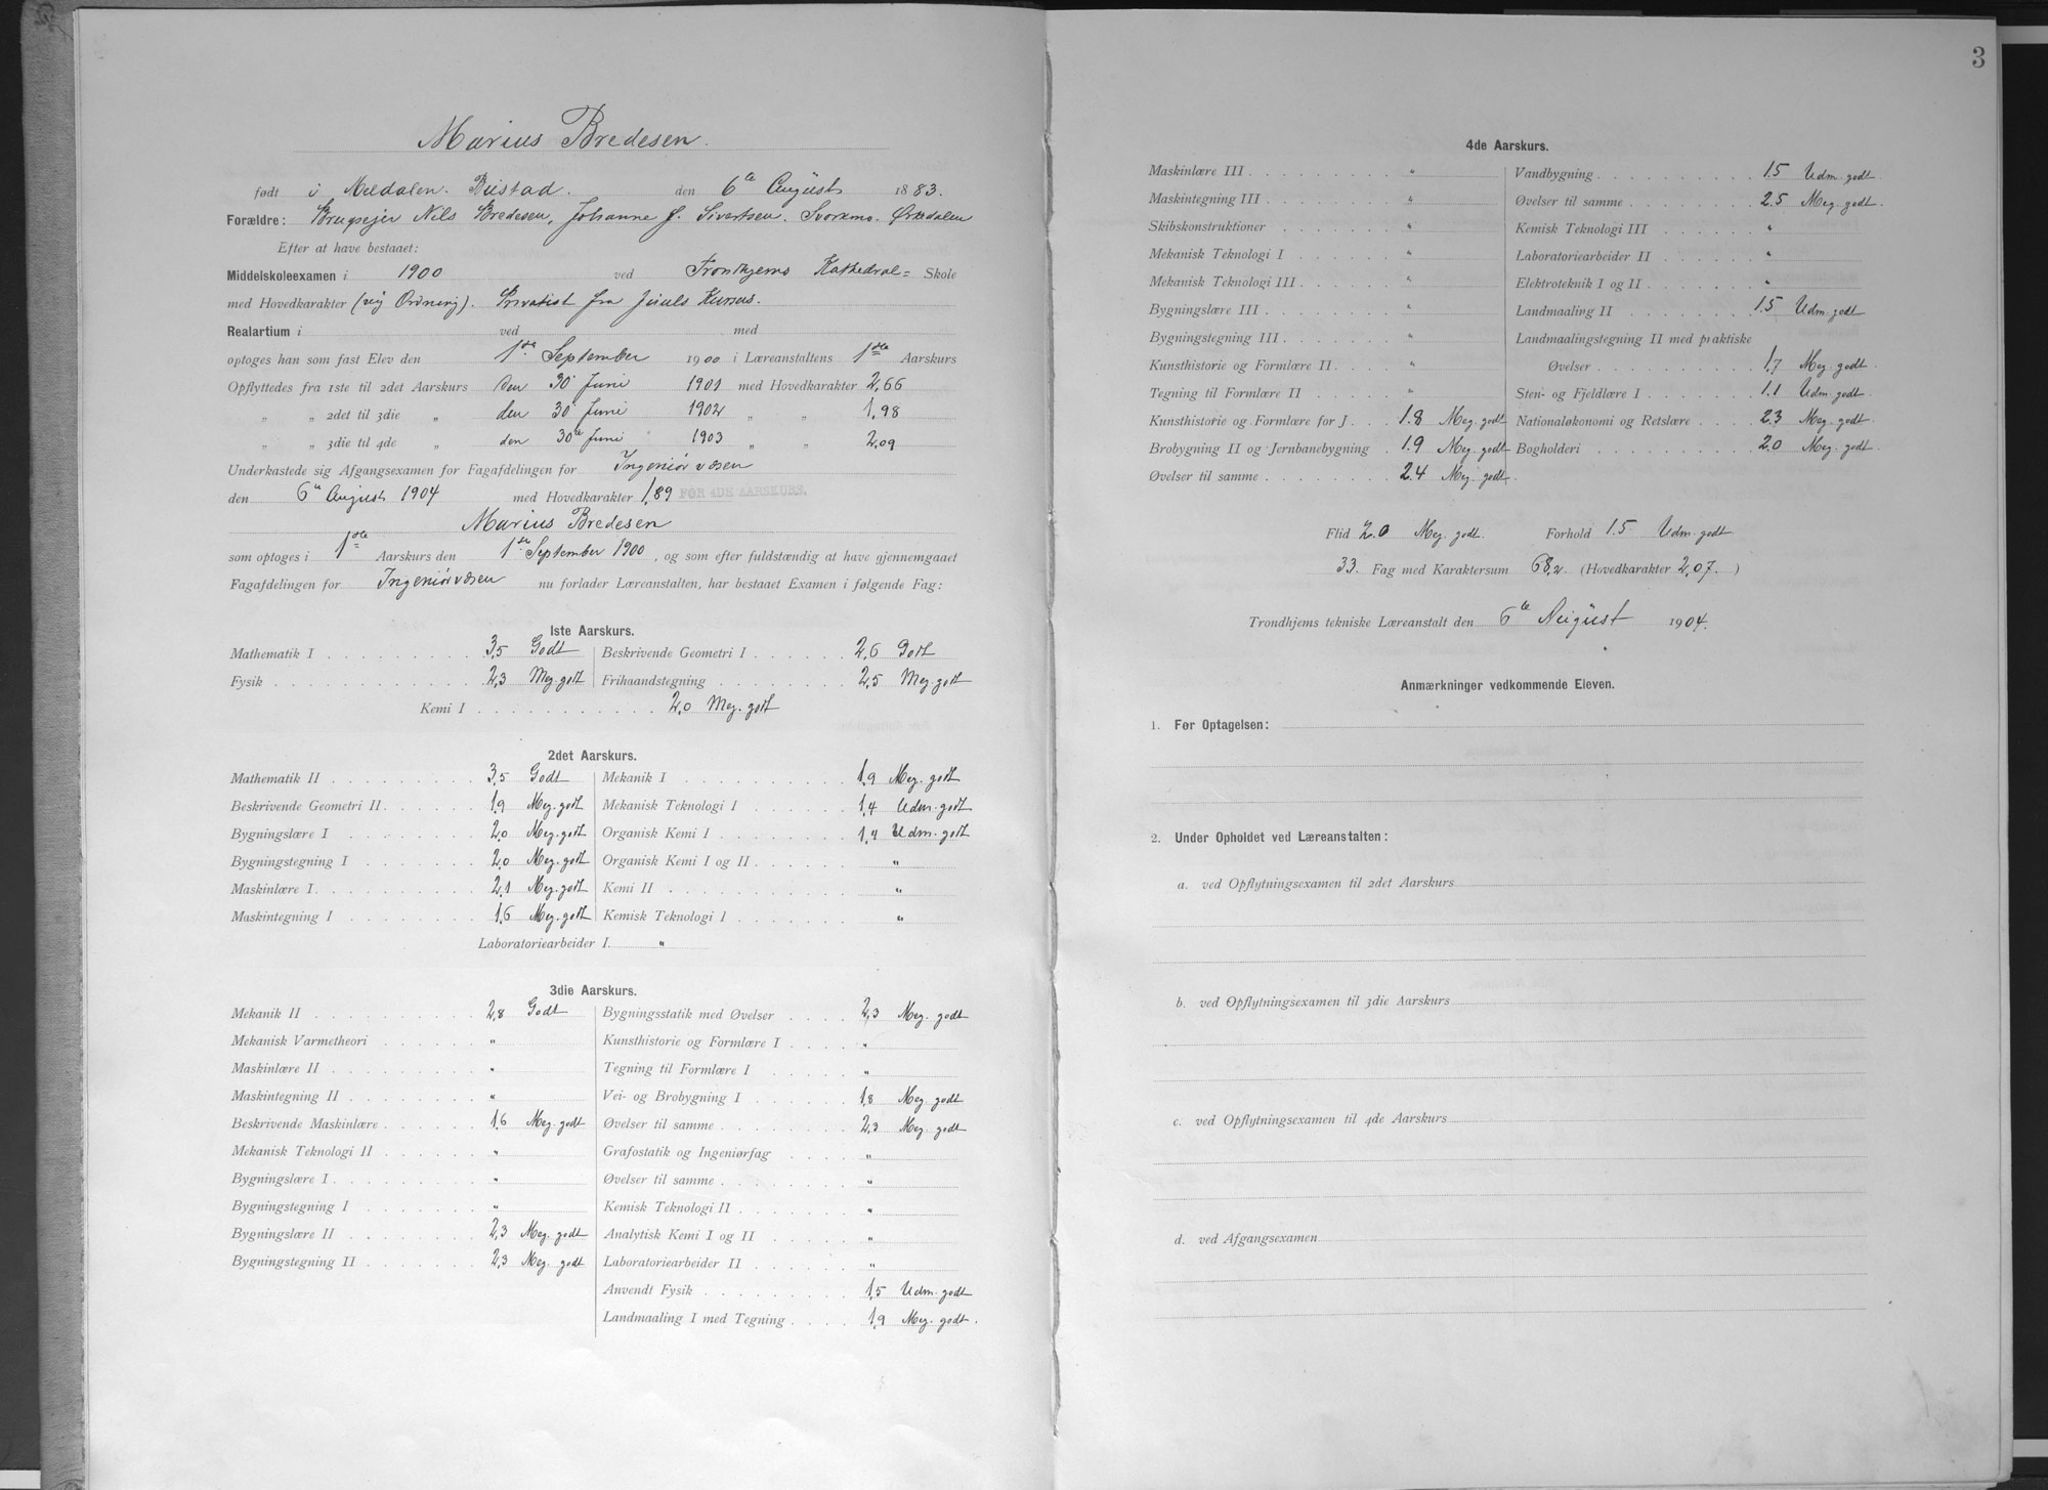 3
Marius Bredesen.
født i Meldalen. Bustad. den 6te August 1883.
Forældre: Brugseier Nils Bredesen, Johanne J. Sivertsen. Svorkmo. Ørkedalen
Efter at have bestaaet:
Middelskoleexamen i 1900 ved Trondhjems Kathedral= Skole
med Hovedkarakter (ny Ordning). Privatist fra Juuls Kursus.
Realartium i ved med
optoges han som fast Elev den 1ste September 1900 i Læreanstaltens 1ste Aarskurs
Opflyttedes fra 1ste til 2det Aarskurs den 30 Juni 1901 med Hovedkarakter 2,66
„ „ 2det til 3die „ den 30 Juni 1902 „ „ 1,98
„ „ 3die til 4de „ den 30te Juni 1903 „ „ 2,09
Underkastede sig Afgangsexamen for Fagafdelingen for Ingeniørvæsen
den 6te August 1904 med Hovedkarakter 1,89 FOR 4DE AARSKURS.
Marius Bredesen
som optoges i 1ste Aarskurs den 1ste September 1900, og som efter fuldstændig at have gjennemgaaet
Fagafdelingen for Ingeniørvæsen nu forlader Læreanstalten, har bestaaet Examen i følgende Fag:
1ste Aarskurs.
Mathematik I 3,5 Godt Beskrivende Geometri I 2,6 Godt
Fysik 2,3 Meg. godt Frihaandstegning 2,5 Meg. godt
Kemi I 2,0 Meg. godt
2det Aarskurs.
Mathematik II 3,5 Godt Mekanik I 1,9 Meg. godt
Beskrivende Geometri II 1,9 Meg. godt Mekanisk Teknologi I 1,4 Udm. godt
Bygningslære I 2,0 Meg. godt Organisk Kemi I 1,4 Udm. godt
Bygningstegning I 2,0 Meg. godt Organisk Kemi I og II "
Maskinlære I 2,1 Meg. godt Kemi II "
Maskintegning I 1,6 Meg. godt Kemisk Teknologi I "
Laboratoriearbeider I "
3die Aarskurs.
Mekanik II 2,8 Godt Bygningsstatik med Øvelser 2,3 Meg. godt
Mekanisk Varmetheori " Kunsthistorie og Formlære I "
Maskinlære II " Tegning til Formlære I "
Maskintegning II " Vei- og Brobygning I 1,8 Meg. godt
Beskrivende Maskinlære 1,6 Meg. godt Øvelser til samme 2,3 Meg. godt
Mekanisk Teknologi II " Grafostatik og Ingeniørfag "
Bygningslære I " Øvelser til samme "
Bygningstegning I " Kemisk Teknologi II "
Bygningslære II 2,3 Meg. godt Analytisk Kemi I og II "
Bygningstegning II 2,3 Meg. godt Laboratoriearbeider II "
Anvendt Fysik 1,5 Udm. godt
Landmaaling I med Tegning 1,9 Meg. godt.
4de Aarskurs.
Maskinlære III " Vandbygning 1.5 Udm. godt
Maskintegning III " Øvelser til samme 2.5 Meg. godt.
Skibskonstruktioner " Kemisk Teknologi III "
Mekanisk Teknologi I " Laboratoriearbeider II "
Mekanisk Teknologi III " Elektroteknik I og II "
Bygningslære III " Landmaaling II 1.5 Udm. godt
Bygningstegning III " Landmaalingstegning II med praktiske
Kunsthistorie og Formlære II " Øvelser 1,7 Meg. godt.
Tegning til Formlære II " Sten- og Fjeldlære I 1.1 Udm. godt.
Kunsthistorie og Formlære for J 1.8 Meg. godt Nationaløkonomi og Retslære 2.3 Meg. godt.
Brobygning II og Jernbanebygning 1.9 Meg. godt Bogholderi 2.0 Meg. godt.
Øvelser til samme 2.4 Meg. godt.
Flid 2.0 Meg. godt. Forhold 1.5 Udm. godt
33. Fag med Karaktersum 68,2. (Hovedkarakter 2,07.)
Trondhjems tekniske Læreanstalt den 6te August 1904.
Anmærkninger vedkommende Eleven.
1. Før Optagelsen:
2. Under Opholdet ved Læreanstalten:
a. ved Opflytningsexamen til 2det Aarskurs
b. ved Opflytningsexamen til 3die Aarskurs
c. ved Opflytningsexamen til 4de Aarskurs
d. ved Afgangsexamen